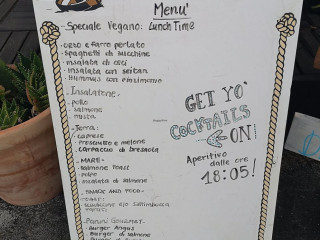 Menu'
Speciale Vegano: Lunch Time
• orzo e farro perlato
• spaghetti di zucchine
• insalata di ceci
• insalata con seitan
• Hummus con pinzimonio
Insalatone:
• pollo
• salmone
• mista
Terra:
• caprese
• prosciutto e melone
• carpaccio di bresaola
MARE:
• salmone Toast
• polpo
• insalata di salmone
SNACK AND FOOD
• toast
Panini Gourmet
• Burger Angus
• Burger di salmone
GET YO'
COCKTAILS
ON!
Aperitivo
dalle ore
18:05!